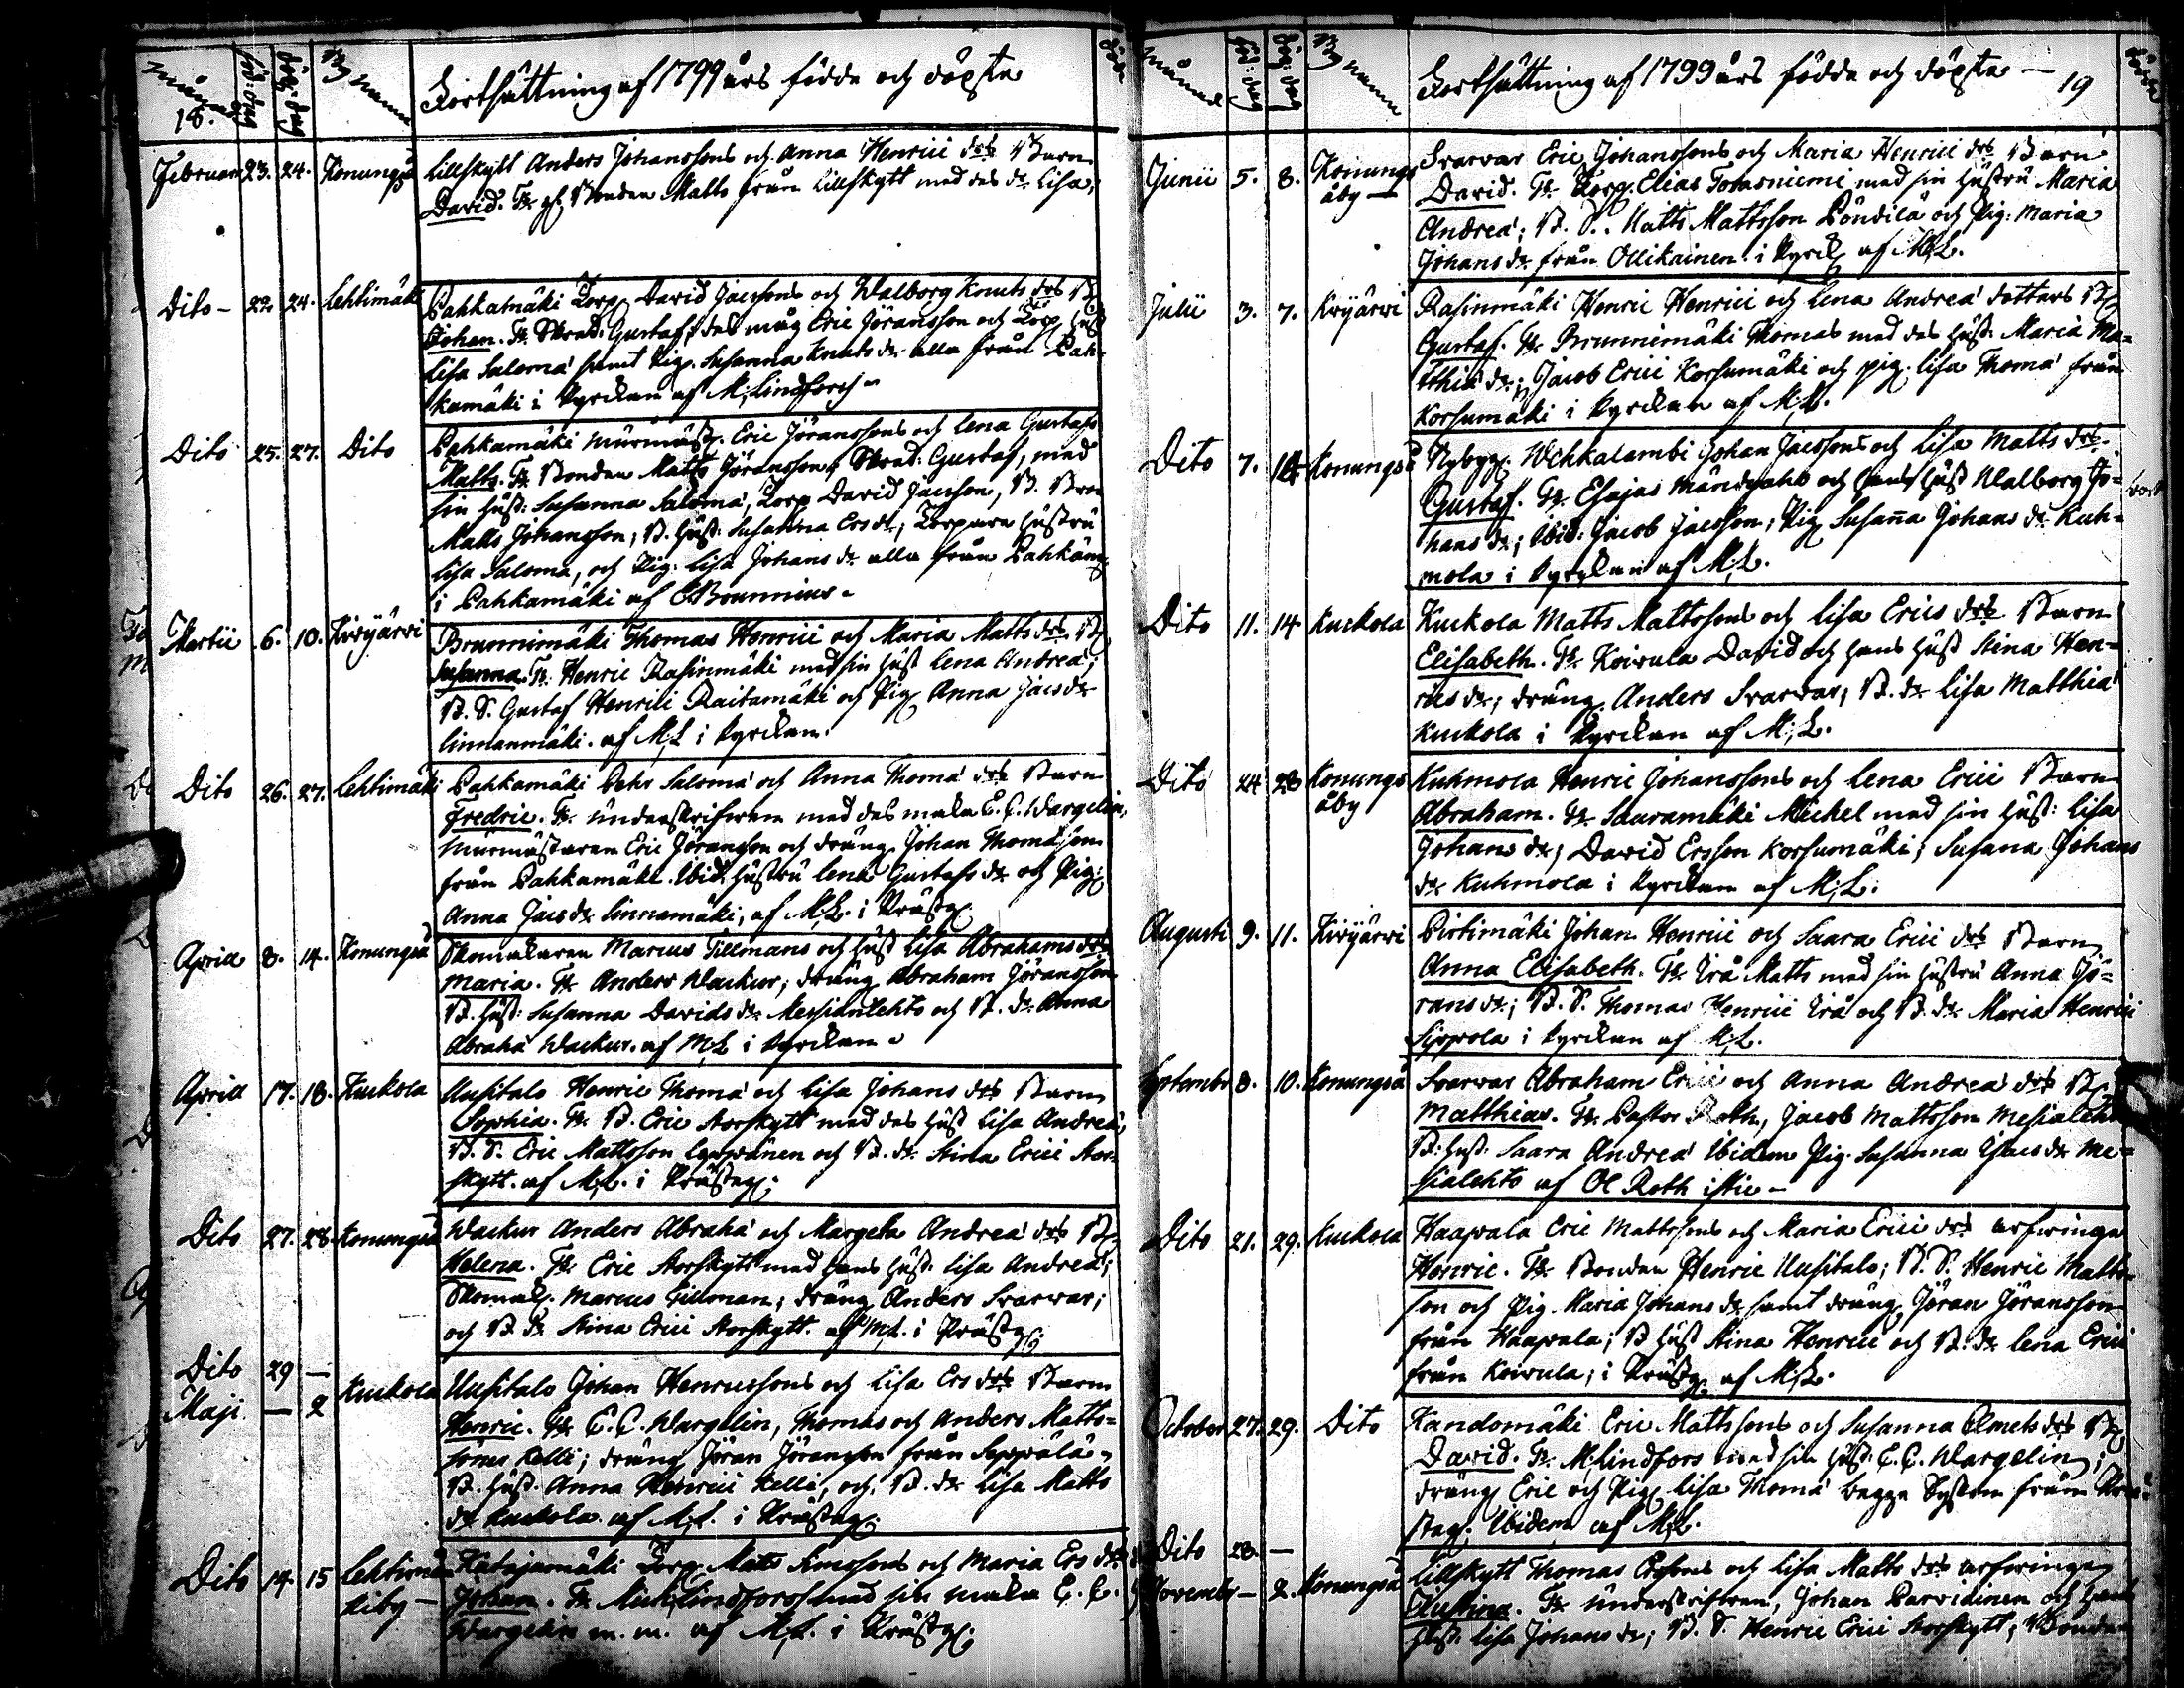 Månad
föd. dag
döp. dag
By namn
18.
Fortsättning af 1799 års födde och döpte
Februarii 23. 24. Konungså Lillskytt Anders Johanssons och Anna Henrici drs Barn
David. Fr. gl. Bonden Matts från Lillskytt med des dr Lisa;
Dito - 22 24. Lehtimäki Pahkamäki Torp. David Jacssons och Walborg Knuts drs B.
Johan. Fr. Skräd. Gustaf; des måg Eric Jöransson och Torp. Hust.
Lisa Saloma samt Pig. Susanna Knuts dr alla från Pah-
kamäki i Kyrckan af M; Lindfors -
Dito 25. 27. Dito Pahkamäki Murmäst. Eric Jöranssons och Lena Gustafs
Matts. Fr. Bonden Matts Jöransson, Skräd: Gustaf, med
sin Hust: Susanna Saloma, Torp David Jacsson, B. Bror
Matts Johansson; B. Hust: Susanna Ers dr, Torpare Hustru
Lisa Saloma, och Pig: Lisa Johans dr alla från Pahkäm
i Pahkamäki af Brunnius -
Martii 6. 10. Kivijärvi Brunnimäki Thomas Henrici och Maria Matts drs B.
Susanna. Fr. Henric Rasinmäki med sin Hust Lena Andreæ;
B. S. Gustaf Henrici Raitamäki och Pig Anna Jacs dr
Linnanmäki. af M; L i Kyrckan.
Dito 26. 27. Lehtimäki Pahkamäki Pehr Saloma och Anna Thomæ drs Barn
Fredric. Fr. Underskrifvaren med des maka E. C. Wargelin,
Murmästaren Eric Jöransson och dräng Johan Thomasson
från Pahkamäki. Ibid. Hustru Lena Gustafs dr och Pig:
Anna Jacs dr Linnamäki, af M; L. i Prästg.
Aprill 8. 14. Konungså Skomakaren Marcus Tillmans och Hust Lisa Abrahams drs
Maria. Fr. Anders Wackur; dräng Abraham Jöransson
B. Hust: Susanna Davids dr Messiänlehto och B. dr Anna
Abrahæ Wackur. af M; L i Kyrckan -
Aprill 17. 18. Kuckola Uusitalo Henric Thomæ och Lisa Johans drs Barn
Sophia. Fr. B. Eric Storskytt med des Hust Lisa Andreæ;
B. S. Eric Mattsson Leppänen och B. dr Stina Erici Stor-
skytt. af M; L. i Prästg:
Dito 27. 28. Konungså Wackur Anders Abrahæ och Margeta Andreæ drs B.
Helena. Fr. Eric Storskytt med hans Hust. Lisa Andreæ;
Skomak. Marcus Tillman; dräng Anders Svarvar;
och B. dr Stina Erici Storskytt. af M; L. i Prästg;
Dito 29 —
Maji — 2 Kuckola Uusitalo Johan Henricssons och Lisa Ers drs Barn
Henric. Fr. E. C. Wargelin, Thomas och Anders Matts-
söner Kelli; dräng Jöran Jöransson från Seppälä -
B. Hust. Anna Henrici Kelli, och B. dr Lisa Matts
dr Kuckola af M; L. i Prästg.
Dito 14. 15 Lehtimäkiby — Katajamäki Torp. Matts Simssons och Maria Ers drs
Johan. Fr. Mich; Lindfors med sin maka E. C.
Wargelin m. m. af M; L. i Prästg;
Månad
föd. dag
döp. dag
By namn
Fortsättning af 1799 års födde och döpte — 19
Junii 5. 8. Konungsåby — Svarvar Eric Johanssons och Maria Henrici drs Barn
David. Fr. Torp. Elias Tomasniemi med sin Hustru Maria
Andreæ; B. S. Matts Mattsson Pöndilä och Pig: Maria
Johans dr från Ollikainen i Kyrck af M; L.
Julii 3. 7. Kivijärvi Rasinmäki Henric Henrici och Lena Andreæ dotters B.
Gustaf. Fr. Brunnimäki Thomas med des Hust. Maria Ma-
tthiæ dr; Jacob Erici Korsumäki och pig. Lisa Thomæ från
Korsumäki i Kyrckan af M; L.
Dito 7. 14 Konungså Nybygg. Wehkalambi Johan Jacssons och Lisa Matts drs
Gustaf. Fr. Esajas Mändykahk och hans Hust Walborg Jo-
hans dr; Ibid: Jacob Jacsson; Pig Susanna Johans dr Kuh-
mola i Kyrckan af M; L.
Dito 11. 14 Kuckola Kuckola Matts Mattssons och Lisa Erics drs Barn
Elisabeth. Fr. Koivula David och hans Hust Stina Hen-
rics dr; dräng Anders Svarvar; B. dr Lisa Matthiæ
Kuckola i Kyrckan af M; L.
Dito 24 28 Konungsåby Kuhmola Henric Johanssons och Lena Erici Barn
Abraham. Fr. Sauramäki Michel med sin Hust: Lisa
Johans dr; David Ersson Korsumäki; Susana Johans
dr Kuhmola i Kyrckan af M; L.
Augusti 9. 11. Kivijärvi Pirtimäki Johan Henrici och Saara Erici drs Barn
Anna Elisabeth. Fr. Irå Matts med sin Hustru Anna Jö-
rans dr; B. S. Thomas Henrici Irå och B. dr Maria Henrici
Sippola i Kyrckan af M; L.
September 8. 10. Konungså Svarvar Abraham Erici och Anna Andreæ drs B.
Matthias. Fr. Pastor Roth, Jacob Mattsson Mesialehto
B: Hust. Saara Andreæ Ibidem Pig. Susanna Isacs dr Me-
sialehto af Ol Roth istic —
Dito 21. 29. Kuckola Haapala Eric Mattssons och Maria Erici drs arfvinge
Henric. Fr. Bonden Henric Uusitalo; B. S. Henric Matts-
son och Pig. Maria Johans dr samt dräng Jöran Jöransson
från Haapala; B Hust Stina Henrici och B. dr Lena Erici
från Koivula; i Prästg. af M; L.
October 27. 29. Dito Kandomäki Eric Mattssons och Susanna Elmets drs B.
David. Fr. M; Lindfors med sin Hust: E. C. Wargelin;
dräng Eric och Pig Lisa Thomæ begge Syskon från Prä-
stag. Ibidem af M; L.
Dito 28. —
November — 2. Konungså Lillskytt Thomas Erssons och Lisa Matts drs arfvinge
Christina. Fr. Underskrifvaren, Johan Parvidinen och hans
Hust. Lisa Johans dr; B. S. Henric Erici Storskytt; Bonden